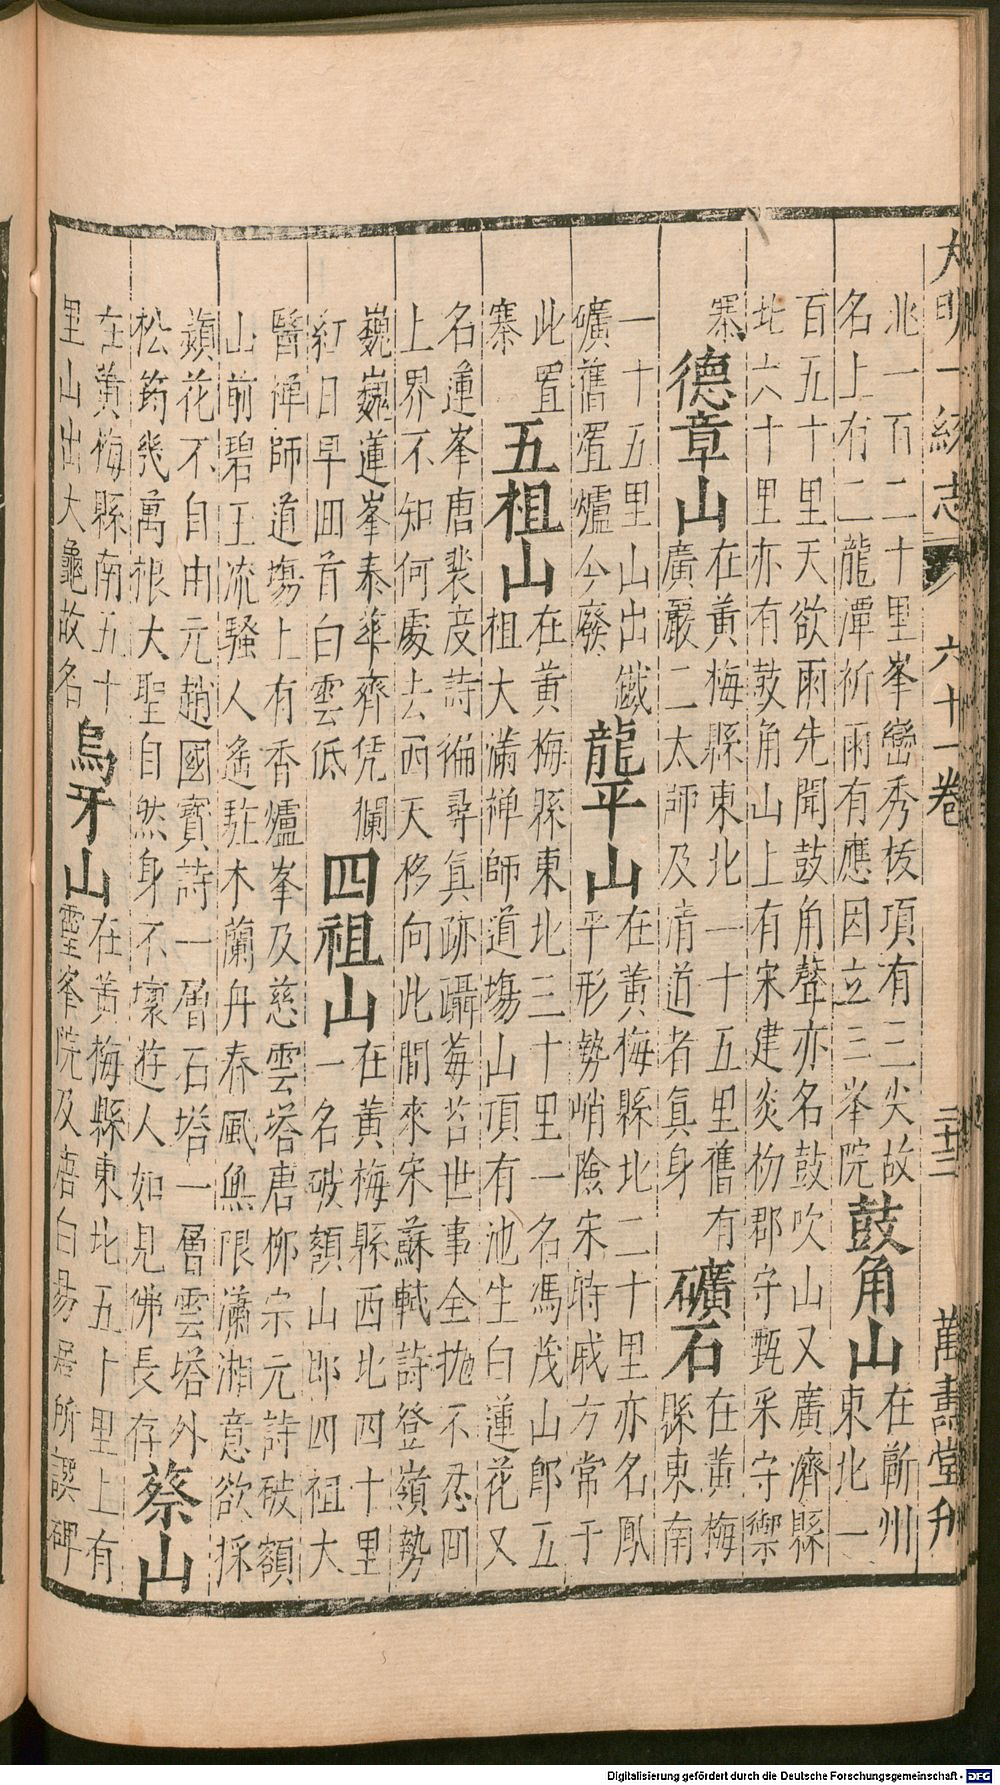 大明一統志 六十一卷 三十三 萬壽堂刋
北一百二十里峯巒秀拔項有三尖故
名上有二龍潭祈雨有應因立三峯院
鼓角山
在蘄州
東北一
百五十里天欲雨先聞鼓角聲亦名鼓吹山又廣濟縣
北六十里亦有鼓角山上有宋建炎初郡守甄采守禦
寨
德章山
在黃梅縣東北一十五里舊有
廣嚴二太師及清道者真身
礦石
在黃梅
縣東南
一十五里山出鐵
礦舊置爐今廢
龍平山
在黃梅縣北二十里亦名鳳
平形勢峭險宋時戚方常于
此置
寨
五祖山
在黃梅縣東北三十里一名馮茂山郎五
祖大滿禅師道塲山頂有池生白蓮花又
名蓮峯唐裴度詩徧尋真跡躡莓苔世事全抛不忍回
上界不知何處去西天移向此間來宋蘇軾詩登嶺勢
巍巍蓮峯泰華齊凭欄
紅日早回首白雲低
四祖山
在黃梅縣西北四十里
一名破額山郎四祖大
醫禅師道塲上有香爐峯及慈雲塔唐柳宗元詩破額
山前碧玉流騷人遙駐木蘭舟春風無限瀟湘意欲採
蘋花不自由元趙國寳詩一層石塔一層雲塔外
松筠幾萬根大聖自然身不壞遊人如見佛長存
蔡山
在黃梅縣南五十
里山出大龜故名
烏牙山
在黃梅縣東北五十里上有
靈峯院及唐白昜居所譔碑
Digitalisierung gefördert durch die Deutsche Forschungsgemeinschaft - DFG